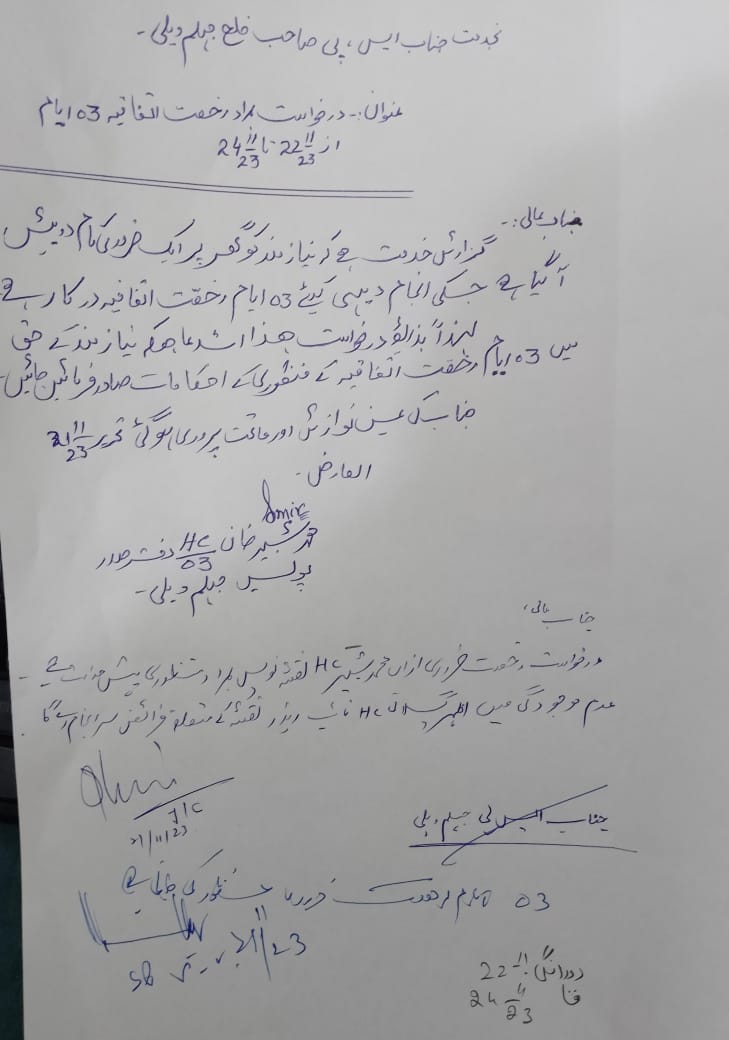 بخدمت جناب ایس، پی صاحب ضلع جہلم ویلی۔
عنوان:- درخواست بمراد رخصت اتفاقیہ 03 ایام
از 22/11/23 تا 24/11/23
جناب عالی:-
گزارش خدمت ہے کہ نیازمند کو گھر پر ایک ضروری کام درپیش
آ گیا ہے جسکی انجام دہی کیلئے 03 ایام رخصت اتفاقیہ درکار ہے
لہذاً بذریعہ درخواست ھذا استدعا ھیکہ نیازمند کے حق
میں 03 ایام رخصت اتفاقیہ کے منظوری کے احکامات صادر فرمائیں جائیں۔
جناب کی عین نوازش اور ماتحت پروری ہوگئ تحریر 21/11/23
العارض۔
محمد شبیر خان HC/03 دفتر صدر
پولیس جہلم ویلی۔
جناب عالی،
درخواست رخصت ضروری ازاں محمد شبیر HC نقشہ نویس بمراد منظوری پیش خدمت ہے۔
عدم موجودگی میں اظہر HC نائب ریڈر نقشہ کے متعلقہ فرائض سرانجام دے گا۔
21/11/23
جناب ایس پی جہلم ویلی
03 یوم رخصت منظور کی جاتی ہے
21/11/23
روانگی 22/11
تا 24/11/23